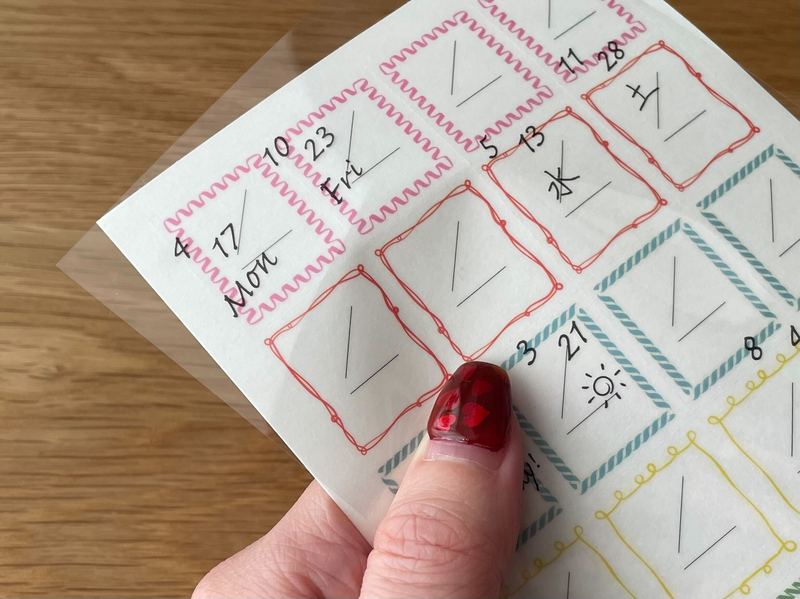 4 17
Mon
10 23
Fri
5 13
水
11 28
土
3 21
8